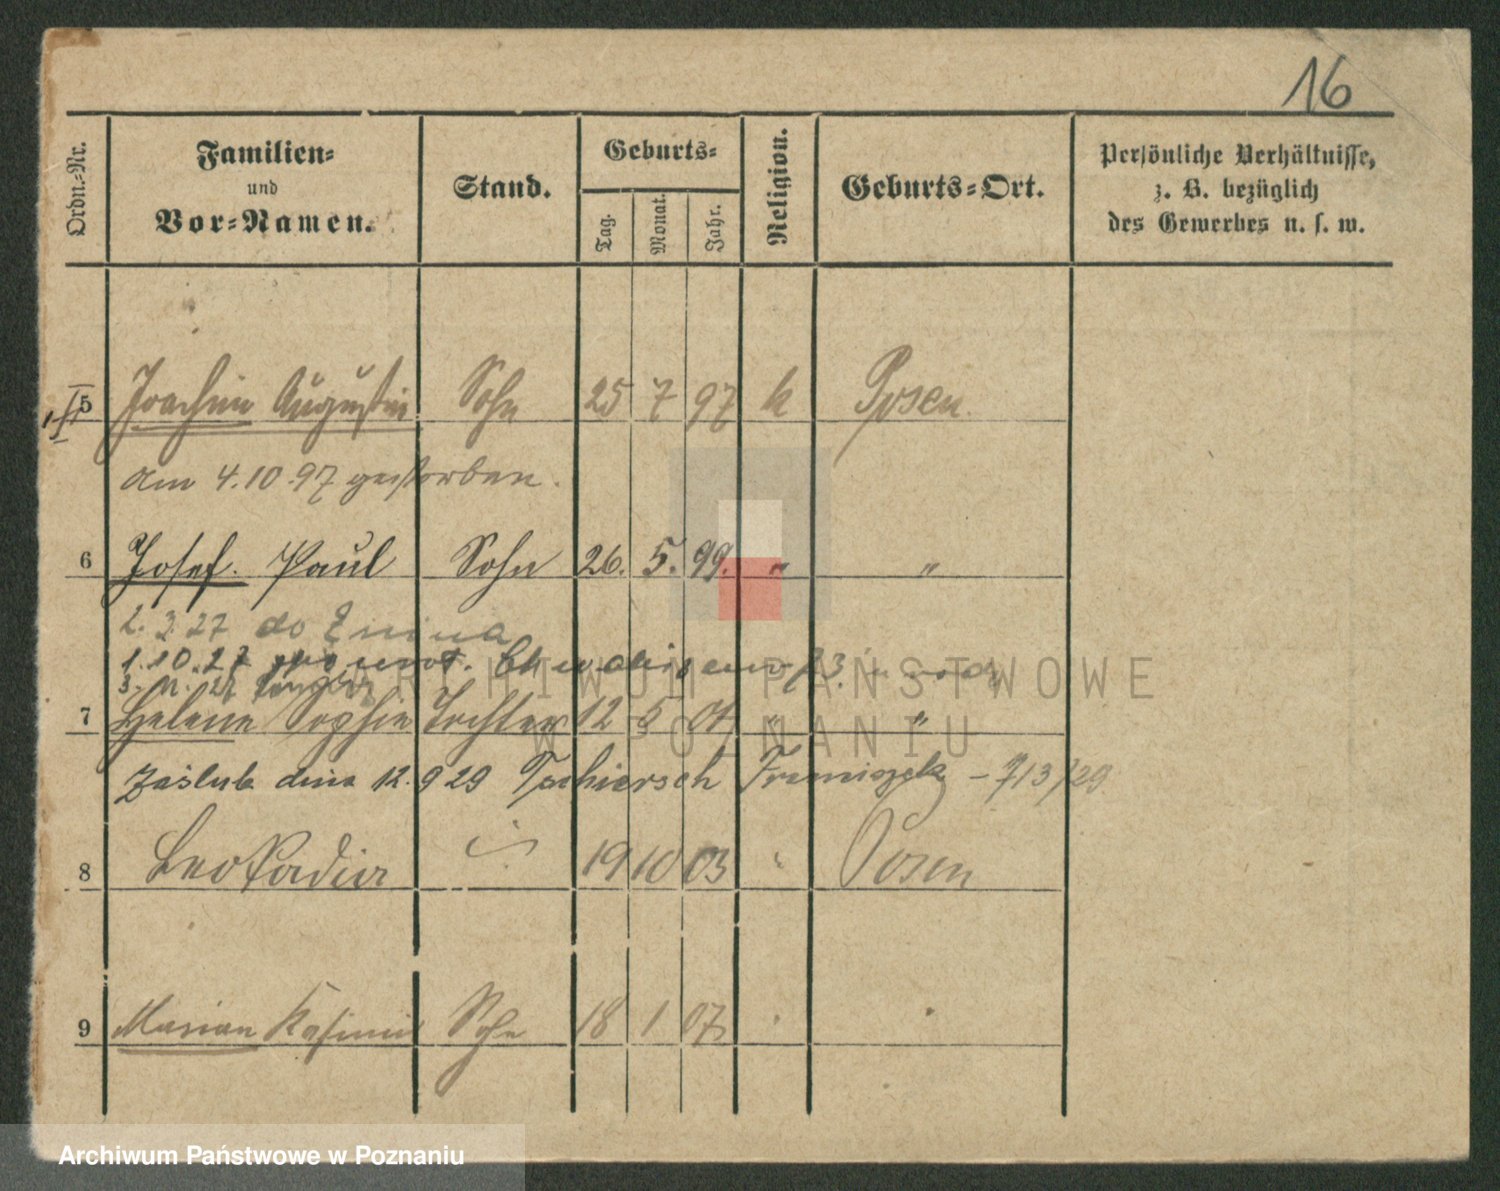 16
Ordn.-Nr.
Familien-
und
Vor-Namen.
Stand.
Geburts-
Tag.
Monat.
Jahr.
Religion.
Geburts-Ort.
Persönliche Verhältnisse,
z. B. bezüglich
des Gewerbes u. s. w.
5 Joachim Augustin Sohn 25 7 97 k Posen
am 4.10.97 gestorben.
6 Josef. Paul Sohn 26. 5. 99. " "
2. 3 27 do Żnina
1.10.27
3. 11. 27
7 Helene Sophie Tochter 12 5 01 " "
zaślub. dnia 12.9 29 Tschiersch Franciszek - 713/29
8 Leokadia 19 10 03 Posen
9 Marian Kasimir Sohn 18 1 07
ARCHIWUM PAŃSTWOWE
W POZNANIU
Archiwum Państwowe w Poznaniu